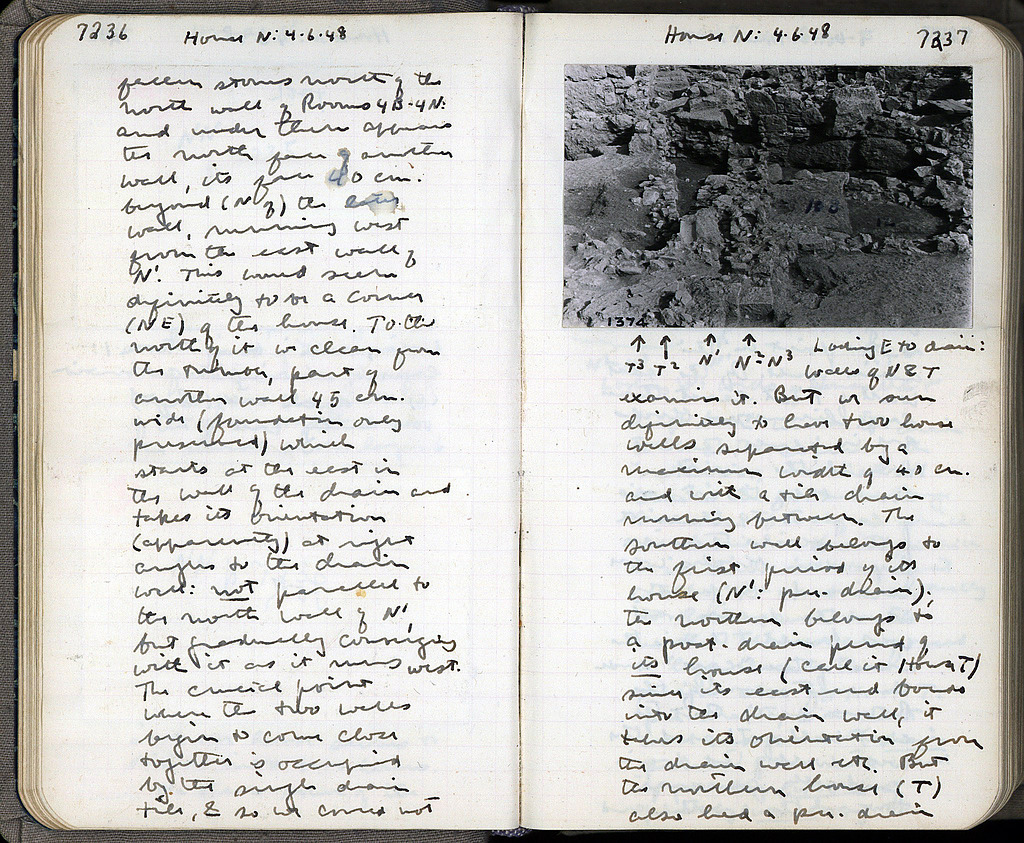 7236
House N: 4·6·48
fallen stones north of the
north wall of Rooms 4B-4N:
and under them appears
the north face of another
wall, its face 40 cm.
beyond (N of) the
wall, running west
from the east wall of
N'. This would seem
definitely to be a corner
(NE) of the house. To the
north of it we clean from
the tumble, part of
another wall 45 cm.
wide (foundation only
preserved) which
starts at the east in
the wall of the drain and
takes its orientation
(apparently) at right
angles to the drain
wall: not parallel to
the north wall of N'
but gradually converging
with it as it runs west.
The crucial point
where the two walls
begin to come close
together is occupied
by the single drain
tile, & so we could not
House N: 4·6·48
7237
1374
T³ T² N' N² N³ Looking E to drain:
Walls of N & T
examine it. But we seem
definitely to have two house
walls separated by a
maximum width of 40 cm.
and with a tile drain
running between. The
southern wall belongs to
the first period of its
house (N': pre-drain);
the northern belongs to
a post-drain period of
its house (call it House T)
since its east end bonds
into the drain wall, it
takes its orientation from
the drain wall etc. But
the northern house (T)
also had a pre-drain